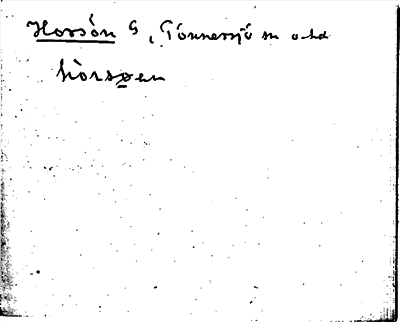 Horsön G, Tönnersjö sn o hd
hòrsøen